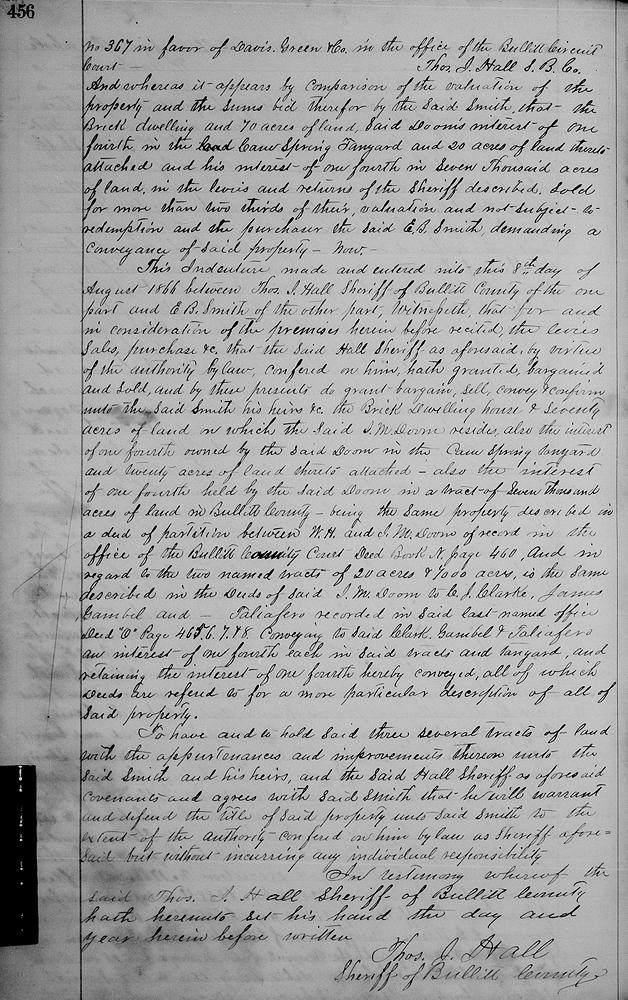 456
no 367 in favor of Davis. Green & Co. in the office of the Bullitt Circuit
Court — Thos. J. Hall S. B. Co.
And whereas it appears by comparison of the valuation of the
property and the sums bid therefor by the said Smith, that the
Brick dwelling and 70 acres of land, Said Doom's interest of one
fourth in the Cane Spring Tanyard and 20 acres of land thereto
attached and his interest of one fourth in Seven Thousand acres
of land, in the levies and returns of the Sheriff described. Sold
for more than two thirds of their, valuation and not subject to
redemption and the purchaser the said E. B. Smith, demanding a
conveyance of said property — Now. —
This Indenture made and entered into this 8th day of
August 1866 between Thos. J. Hall Sheriff of Bullitt County of the one
part and E. B. Smith of the other part, Witnesseth, that for and
in consideration of the premises herein before recited, the levies
Sales, purchase &c, that the Said Hall Sheriff as aforesaid, by virtue
of the authority by law, confered on him, hath granted, bargained
and sold, and by these presents do grant bargain, Sell, convey & confirm
unto the said Smith his heirs &c. the Brick Dwelling house & Seventy
acres of land on which the said J. M. Doom resides, also the interest
of one fourth owned by the said Doom in the Cane Spring Tanyard
and twenty acres of land thereto attached — also the interest
of one fourth held by the said Doom in a tract of Seven thousand
acres of land in Bullitt County — being the same property described in
a deed of partition between W. H. and J. M. Doom of record in the
office of the Bullitt County Court Deed Book N, page 460, And in
regard to the two named tracts of 20 acres & 7000 acres, is the Same
described in the Deeds of said J. M. Doom to C. J. Clarke, James
Gambel and — Taliafero recorded in said last named office
Deed "O" Page 465. 6. 7. & 8. Conveying to said Clark. Gambel & Taliafero
an interest of one fourth each in said tracts and tanyard, and
retaining the interest of one fourth hereby conveyed, all of which
Deeds are refered to for a more particular description of all of
said property.
To have and to hold said three several tracts of land
with the appurtenances and improvements thereon unto the
said Smith and his heirs, and the said Hall Sheriff as aforesaid
covenants and agrees with said Smith that he will warrant
and defend the title of said property unto said Smith to the
extent of the authority confered on him by law as Sheriff afore=
said but without incurring any individual responsibility
In testimony whereof the
said Thos. J. Hall Sheriff of Bullitt County
hath hereunto set his hand the day and
year herein before written
Thos. J. Hall
Sheriff of Bullitt County